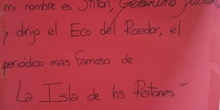 mi nombre es Stilton, Geronimo Stilton,
y dirijo el Eco del Roedor, el
periódico más famoso de
La Isla de los Ratones"